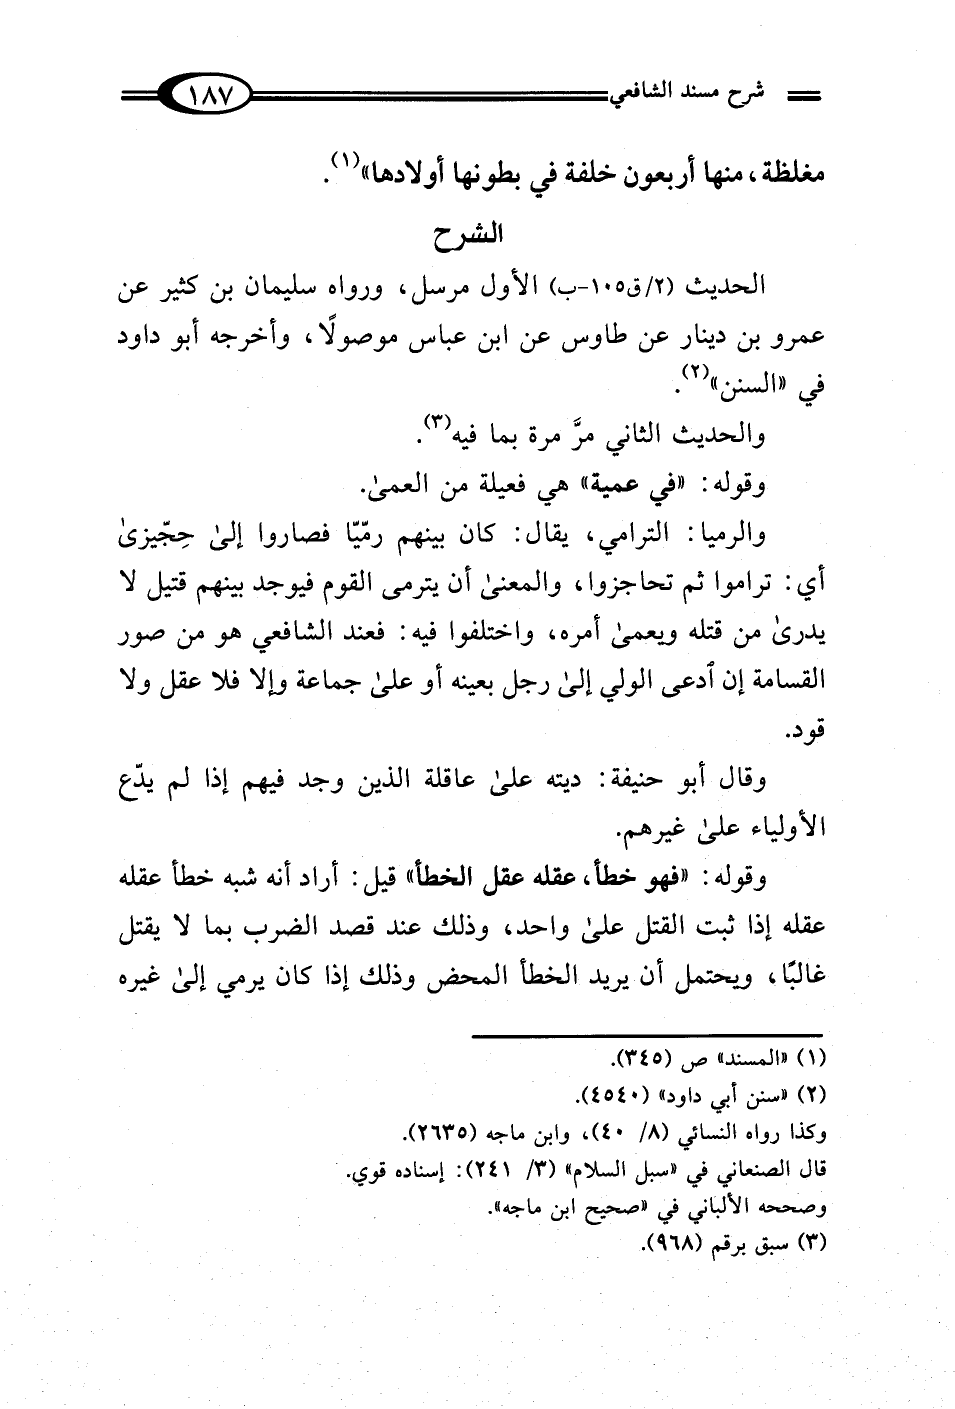 شرح مسند الشافعي ١٨٧
مغلظة، منها أربعون خلفة في بطونها أولادها»(١).
الشرح
الحديث (٢/ق١٠٥-ب) الأول مرسل، ورواه سليمان بن كثير عن
عمرو بن دينار عن طاوس عن ابن عباس موصولًا، وأخرجه أبو داود
في «السنن»(٢).
والحديث الثاني مرَّ مرة بما فيه(٣).
وقوله: «في عمية» هي فعيلة من العمىٰ.
والرميا: الترامي، يقال: كان بينهم رمّيّا فصاروا إلىٰ حِجّيزىٰ
أي: تراموا ثم تحاجزوا، والمعنىٰ أن يترمى القوم فيوجد بينهم قتيل لا
يدرىٰ من قتله ويعمىٰ أمره، واختلفوا فيه: فعند الشافعي هو من صور
القسامة إن ٱدعى الولي إلىٰ رجل بعينه أو علىٰ جماعة وإلا فلا عقل ولا
قود.
وقال أبو حنيفة: ديته علىٰ عاقلة الذين وجد فيهم إذا لم يدّع
الأولياء علىٰ غيرهم.
وقوله: «فهو خطأ، عقله عقل الخطأ» قيل: أراد أنه شبه خطأ عقله
عقله إذا ثبت القتل علىٰ واحد، وذلك عند قصد الضرب بما لا يقتل
غالبًا، ويحتمل أن يريد الخطأ المحض وذلك إذا كان يرمي إلىٰ غيره
(١) «المسند» ص (٣٤٥).
(٢) «سنن أبي داود» (٤٥٤٠).
وكذا رواه النسائي (٨/ ٤٠)، وابن ماجه (٢٦٣٥).
قال الصنعاني في «سبل السلام» (٣/ ٢٤١): إسناده قوي.
وصححه الألباني في «صحيح ابن ماجه».
(٣) سبق برقم (٩٦٨).